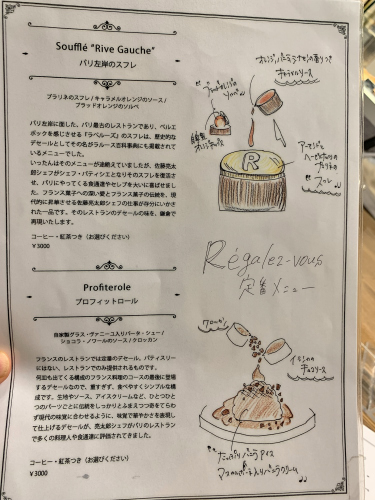 Soufflé "Rive Gauche"
パリ左岸のスフレ
プラリネのスフレ / キャラメルオレンジのソース /
ブラッドオレンジのソルベ
パリ左岸に面した、パリ最古のレストランであり、ベルエ
ポックを感じさせる『ラペルーズ』のスフレは、歴史的な
デセールとしてその名がラルース百科事典にも掲載されて
いるメニューでした。
いったんはそのメニューが途絶えていましたが、佐藤亮太
郎シェフがシェフ・パティシエとなりそのスフレを復活さ
せ、パリにやってくる食通達やセレブを大いに喜ばせました。
フランス菓子への深い愛とフランス菓子の伝統を、現
代的に昇華させる佐藤亮太郎シェフの仕事が存分にいか
された一品です。そのレストランのデセールの味を、鎌倉で
再現いたします。
コーヒー・紅茶つき(お選びください)
¥3000
オレンジ、バニラ
キャラメルソース
ブラッドオレンジの
ソルベ
R
アーモンドと
ヘーゼルナッツの
スフレ
Régalez-vous
定番メニュー
Profiterole
プロフィットロール
自家製グラス・ヴァニーユ入りパータ・シュー /
ショコラ・ノワールのソース / クロッカン
フランスのレストランでは定番のデセール。パティスリー
にはない、レストランでのみ提供されるものです。
何皿も出てくる構成のフランス料理のコースの最後に登場
するデセールなので、重すぎず、食べやすくシンプルな構
成です。生地やソース、アイスクリームなど、ひとつひと
つのパーツごとに伝統をしっかりとふまえつつ奇をてらわ
ず現代の味覚に合わせるように、味覚で華やかさを表現し
て仕上げるデセールが、亮太郎シェフがパリのレストラン
で多くの料理人や食通達に評価されてきました。
コーヒー・紅茶つき(お選びください)
¥3000
クロッカン
チョコソース
たっぷりバニラアイス